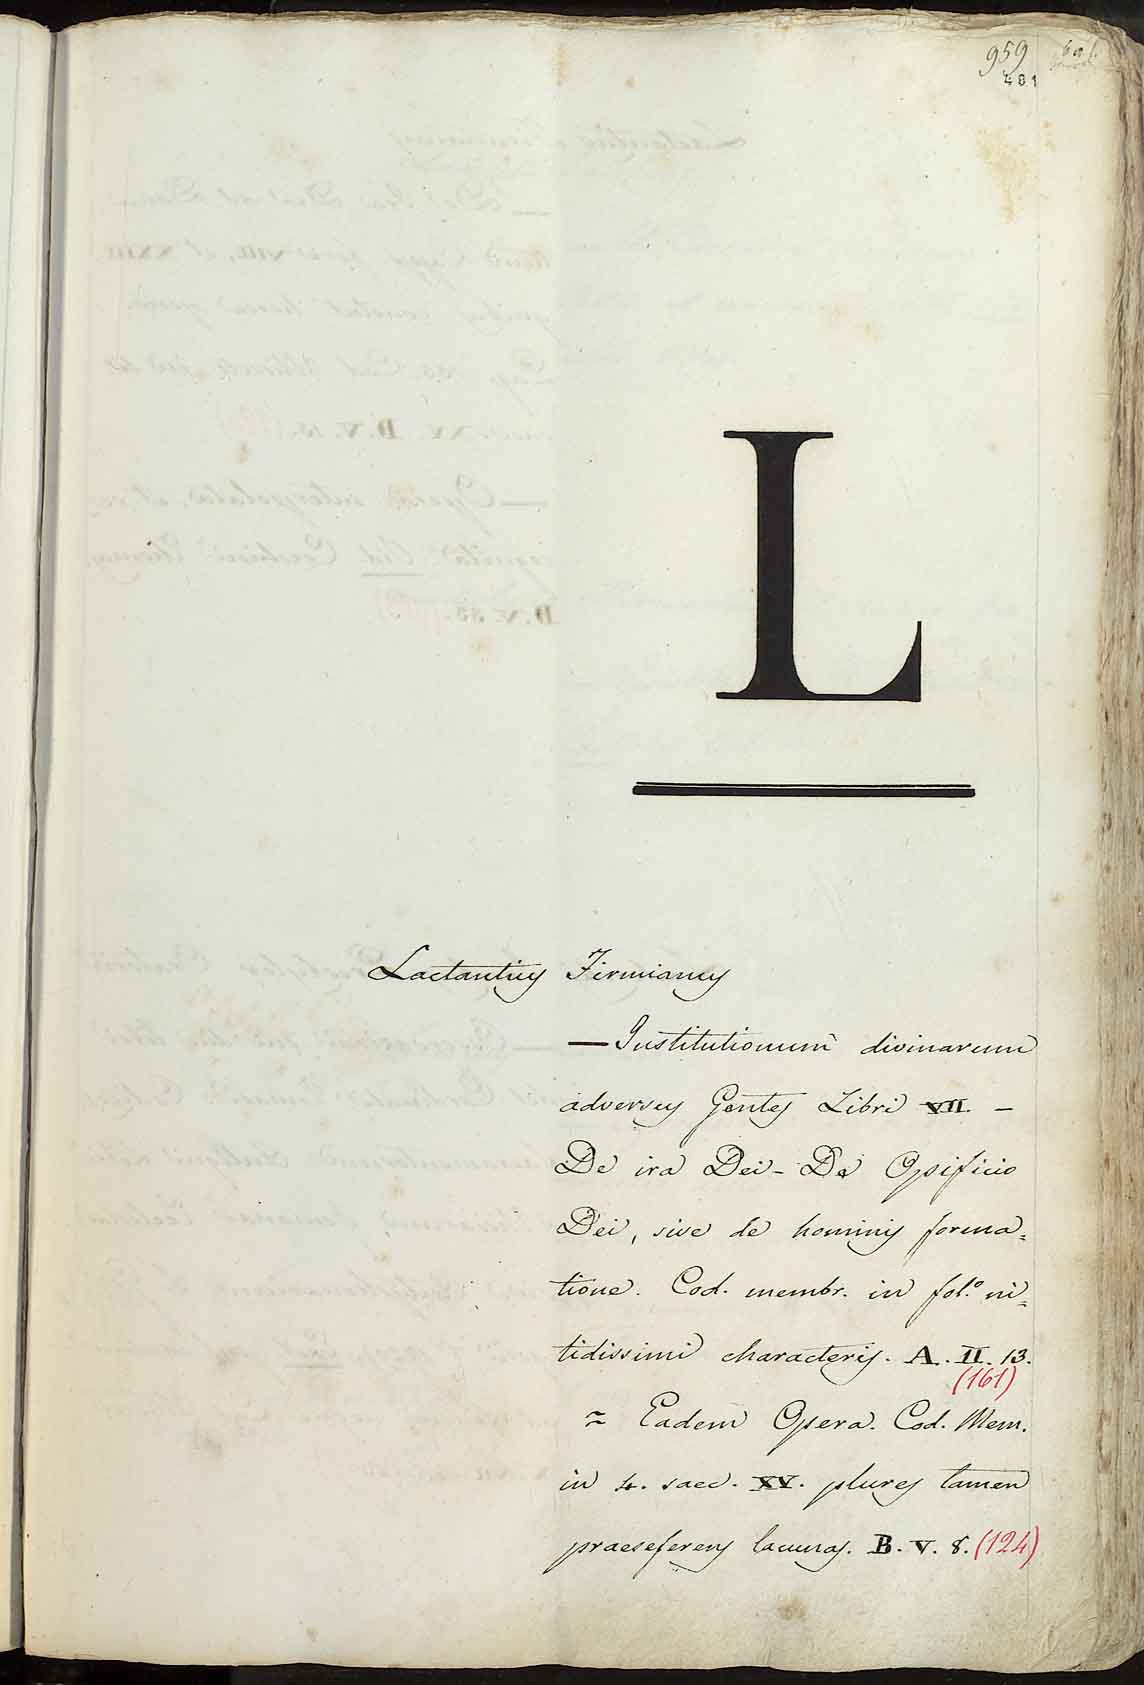 959
481
L
Lactantius Firmianus
— Institutionum divinarum
adversus Gentes Libri VII. —
De ira Dei - De Opificio
Dei, sive de hominis forma=
tione. Cod. membr. in fol.º ni=
tidissimi characteris. A. II. 13.
(161)
~ Eadem Opera. Cod. Mem.
in 4. saec. XV. plures tamen
praeseferens lacunas. B. V. 8. (124)